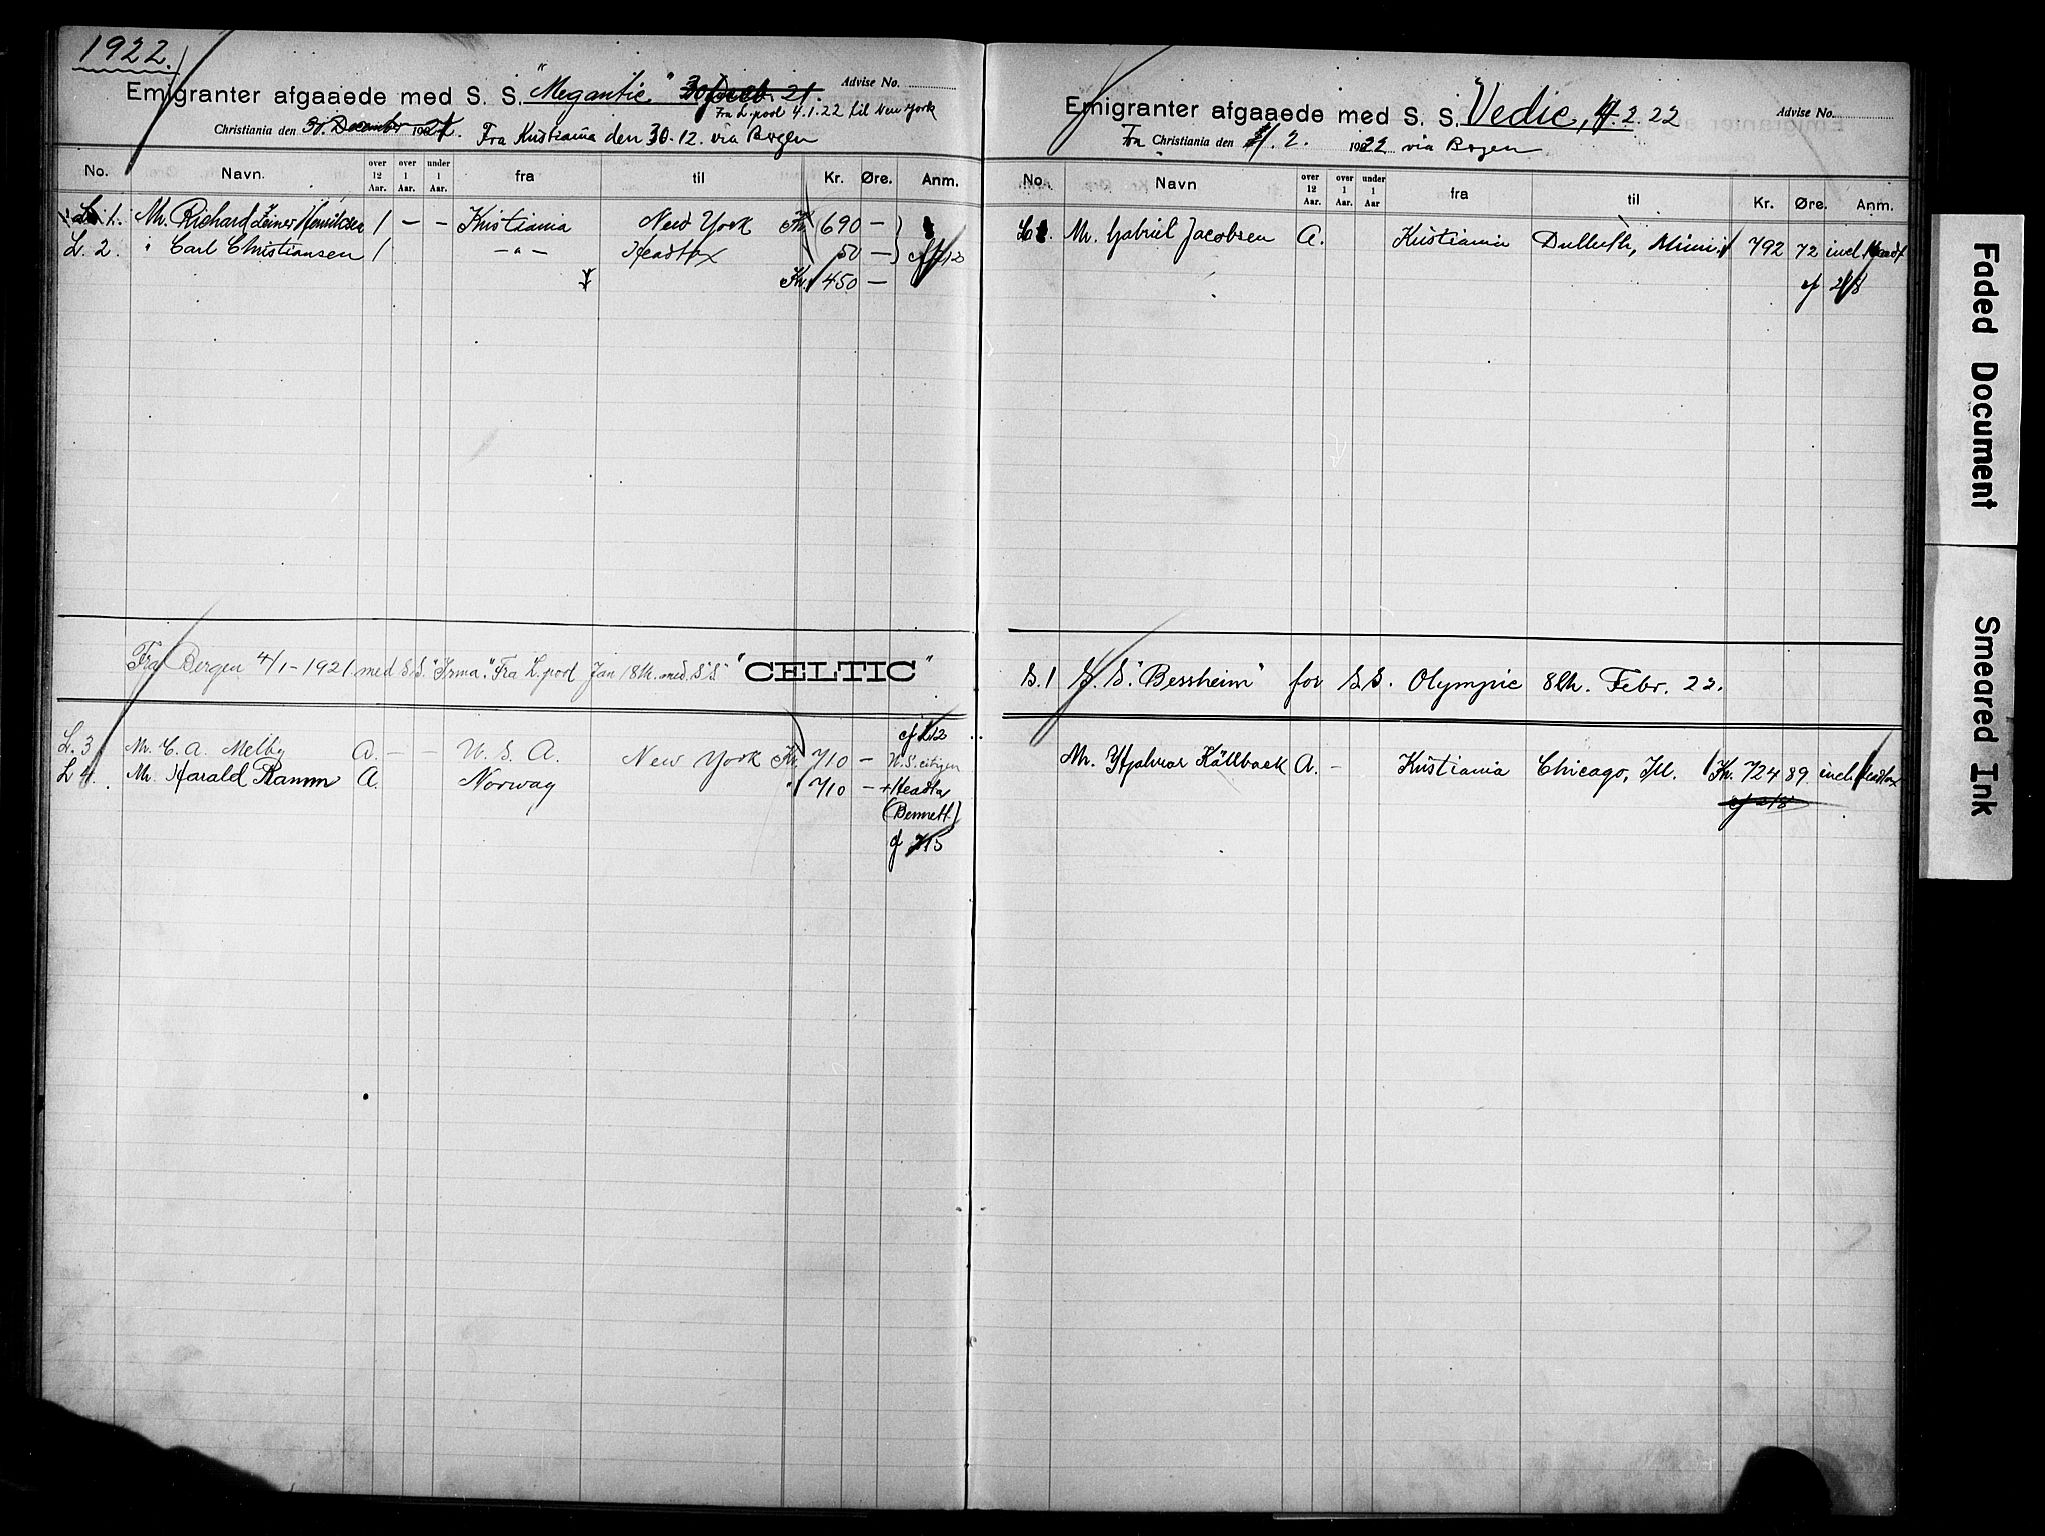 1922.
Emigranter afgaaede med S. S. "Megantic" 21. Advise No.
Fra L.pool 4.1.22 til New York
Christiania den 30. December 192 Fra Kristiania den 30.12. via Bergen
No. Navn. over 12 Aar. over 1 Aar. under 1 Aar. fra til Kr. Øre. Anm.
L. 1. Mr. Richard Henriksen 1 — — Kristiania New York Kr. 690 —
L. 2. " Carl Christiansen 1 — " — Headtax 50 —
Kr. 450 —
Fra Bergen 4/1-1921 med S.S. "Irma". Fra L.pool Jan 18th. med S.S. "CELTIC"
cf 2/12
L. 3 Mr. C. A. Melby A. — — U. S. A. New York Kr. 710 — U.S. citizen
L 4. Mr. Harald Ramm A. Norway " 710 — + Headtax
(Bennett)
cf
Emigranter afgaaede med S. S. Vedic, 2. 22 Advise No.
Fra Christiania den 2. 1922 via Bergen
No. Navn over 12 Aar. over 1 Aar. under 1 Aar fra til Kr. Øre. Anm.
Mr. Gabriel Jacobsen A. Kristiania Dulluth, 792 72 incl. Headt
cf
S.1 S. S. "Bessheim" for S.S. Olympic 8th. Febr. 22.
Mr. Hjalmar Källbaek A. — Kristiania Chicago, Ill. Kr. 724 89 incl. Headtax
cf 2/8
Faded Document
Smeared Ink